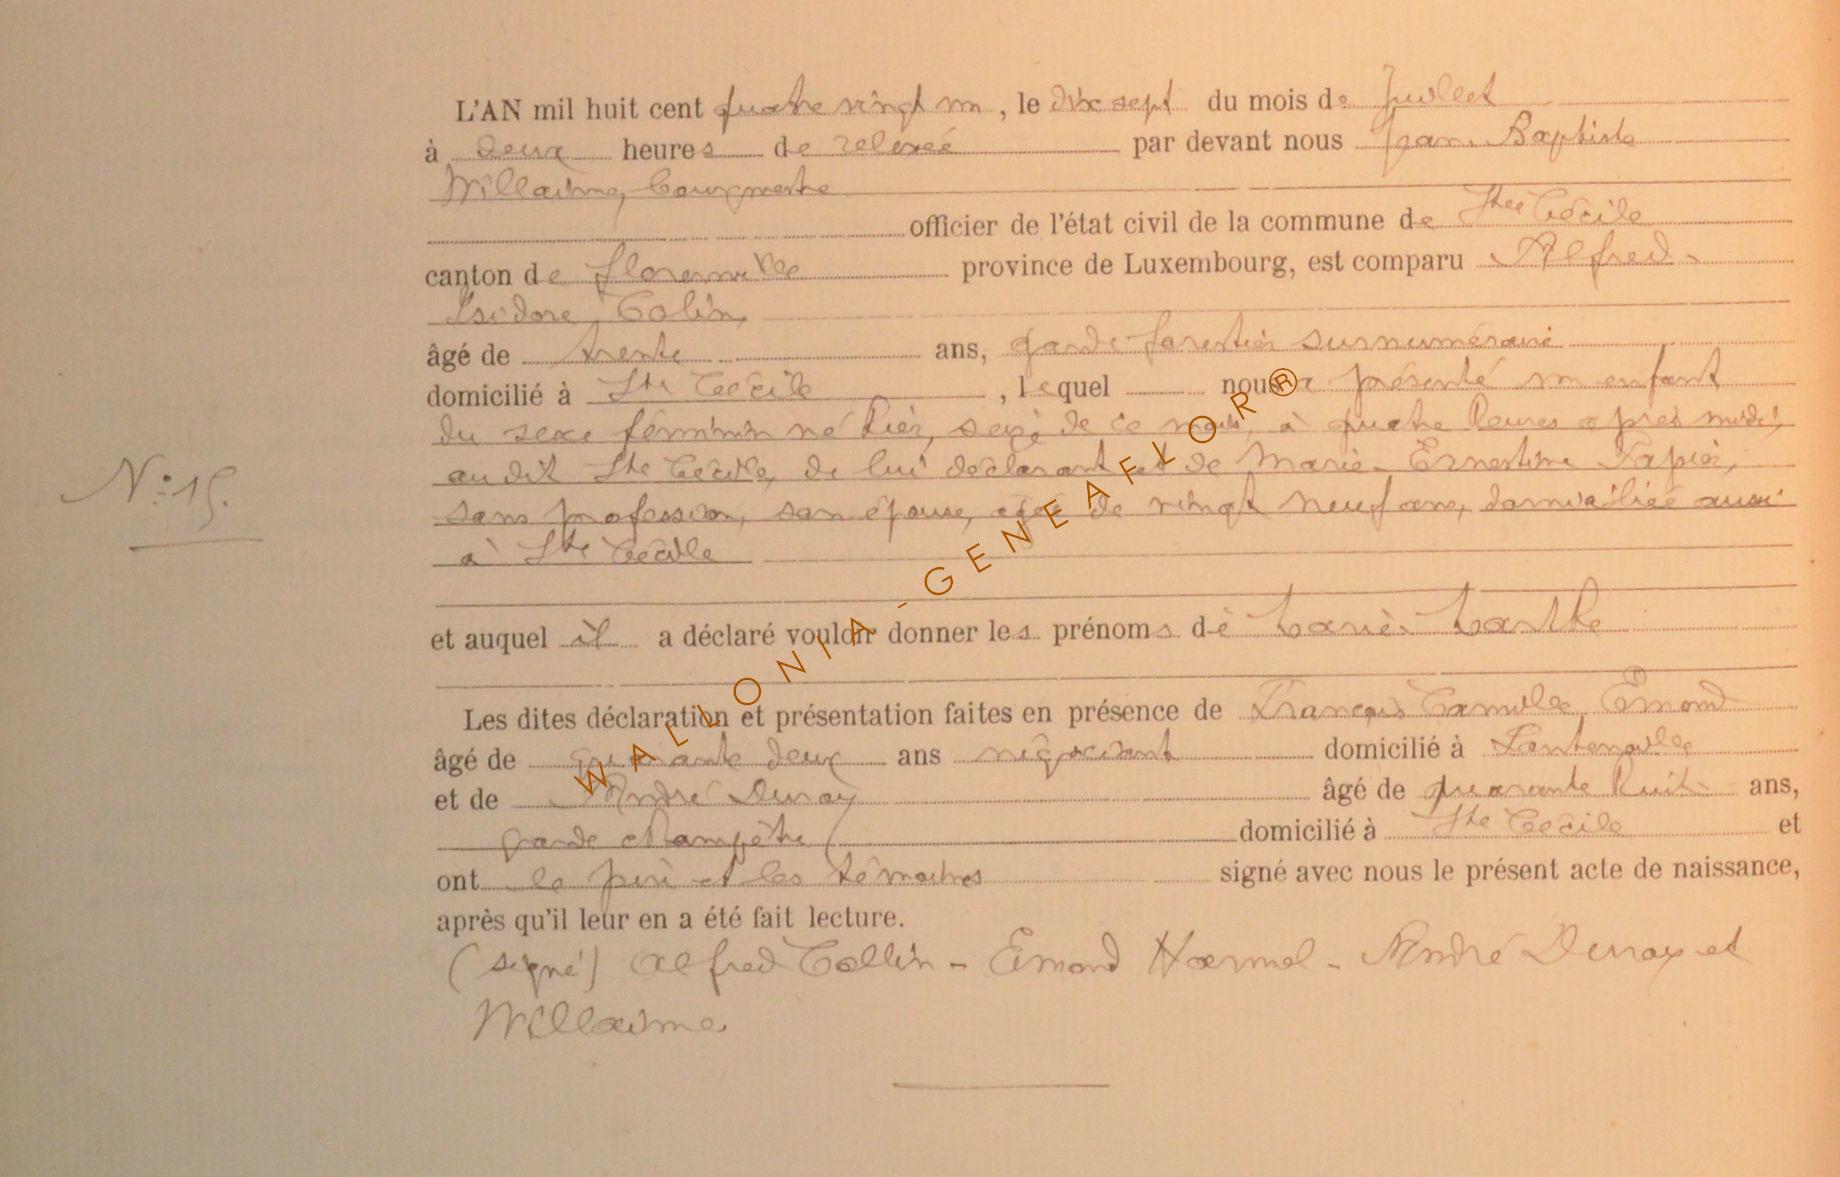 L'AN mil huit cent quatre vingt un, le dix sept du mois de Juillet
à deux heures de relevée par devant nous Jean Baptiste
Willaime, bourgmestre
officier de l'état civil de la commune de Ste Cécile
canton de Florenville province de Luxembourg, est comparu Alfred
Isidore Colin,
âgé de trente ans, garde forestier surnuméraire
domicilié à Ste Cécile, lequel nous a présenté un enfant
du sexe féminin né hier, seize de ce mois, à quatre heures après midi,
au dit Ste Cécile, de lui déclarant et de Marie Ernestine Lapier,
sans profession, son épouse, agée de vingt neuf ans, domiciliée aussi
N° 15.
à Ste Cécile
et auquel il a déclaré vouloir donner les prénoms de Marie Marthe
Les dites déclaration et présentation faites en présence de François Camille Emond
âgé de quarante deux ans négociant domicilié à
et de André Duroy âgé de quarante huit ans,
garde champêtre domicilié à Ste Cécile et
ont le père et les témoins signé avec nous le présent acte de naissance,
après qu'il leur en a été fait lecture.
(signé) Alfred Collin - Emond Harmel - André Duroy et
Willaime
WALLONIA-GENEAFLOR®